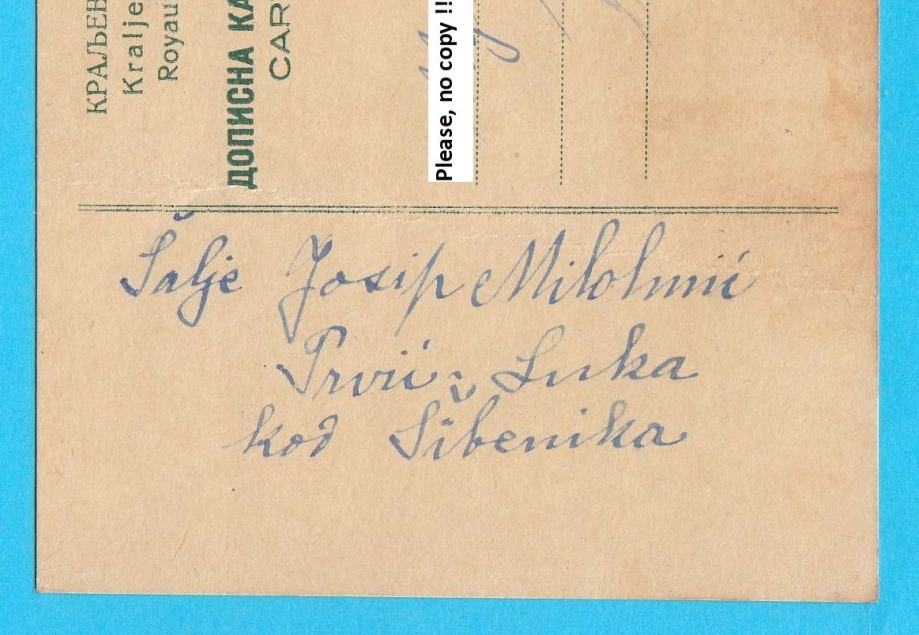 КРАЉЕВ
Kralje
Royau
ДОПИСНА КА
CAR
Please, no copy !!
Šalje Josip
Prvić-Luka
kod Šibenika